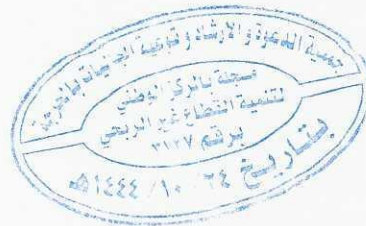 جمعية الدعوة والإرشاد وتوعية الجاليات بالحرجة
مسجلة بالمركز الوطني
لتنمية القطاع غير الربحي
برقم ٣١٢٧
بتاريخ ٢٤ / ١٠ / ١٤٤٤هـ